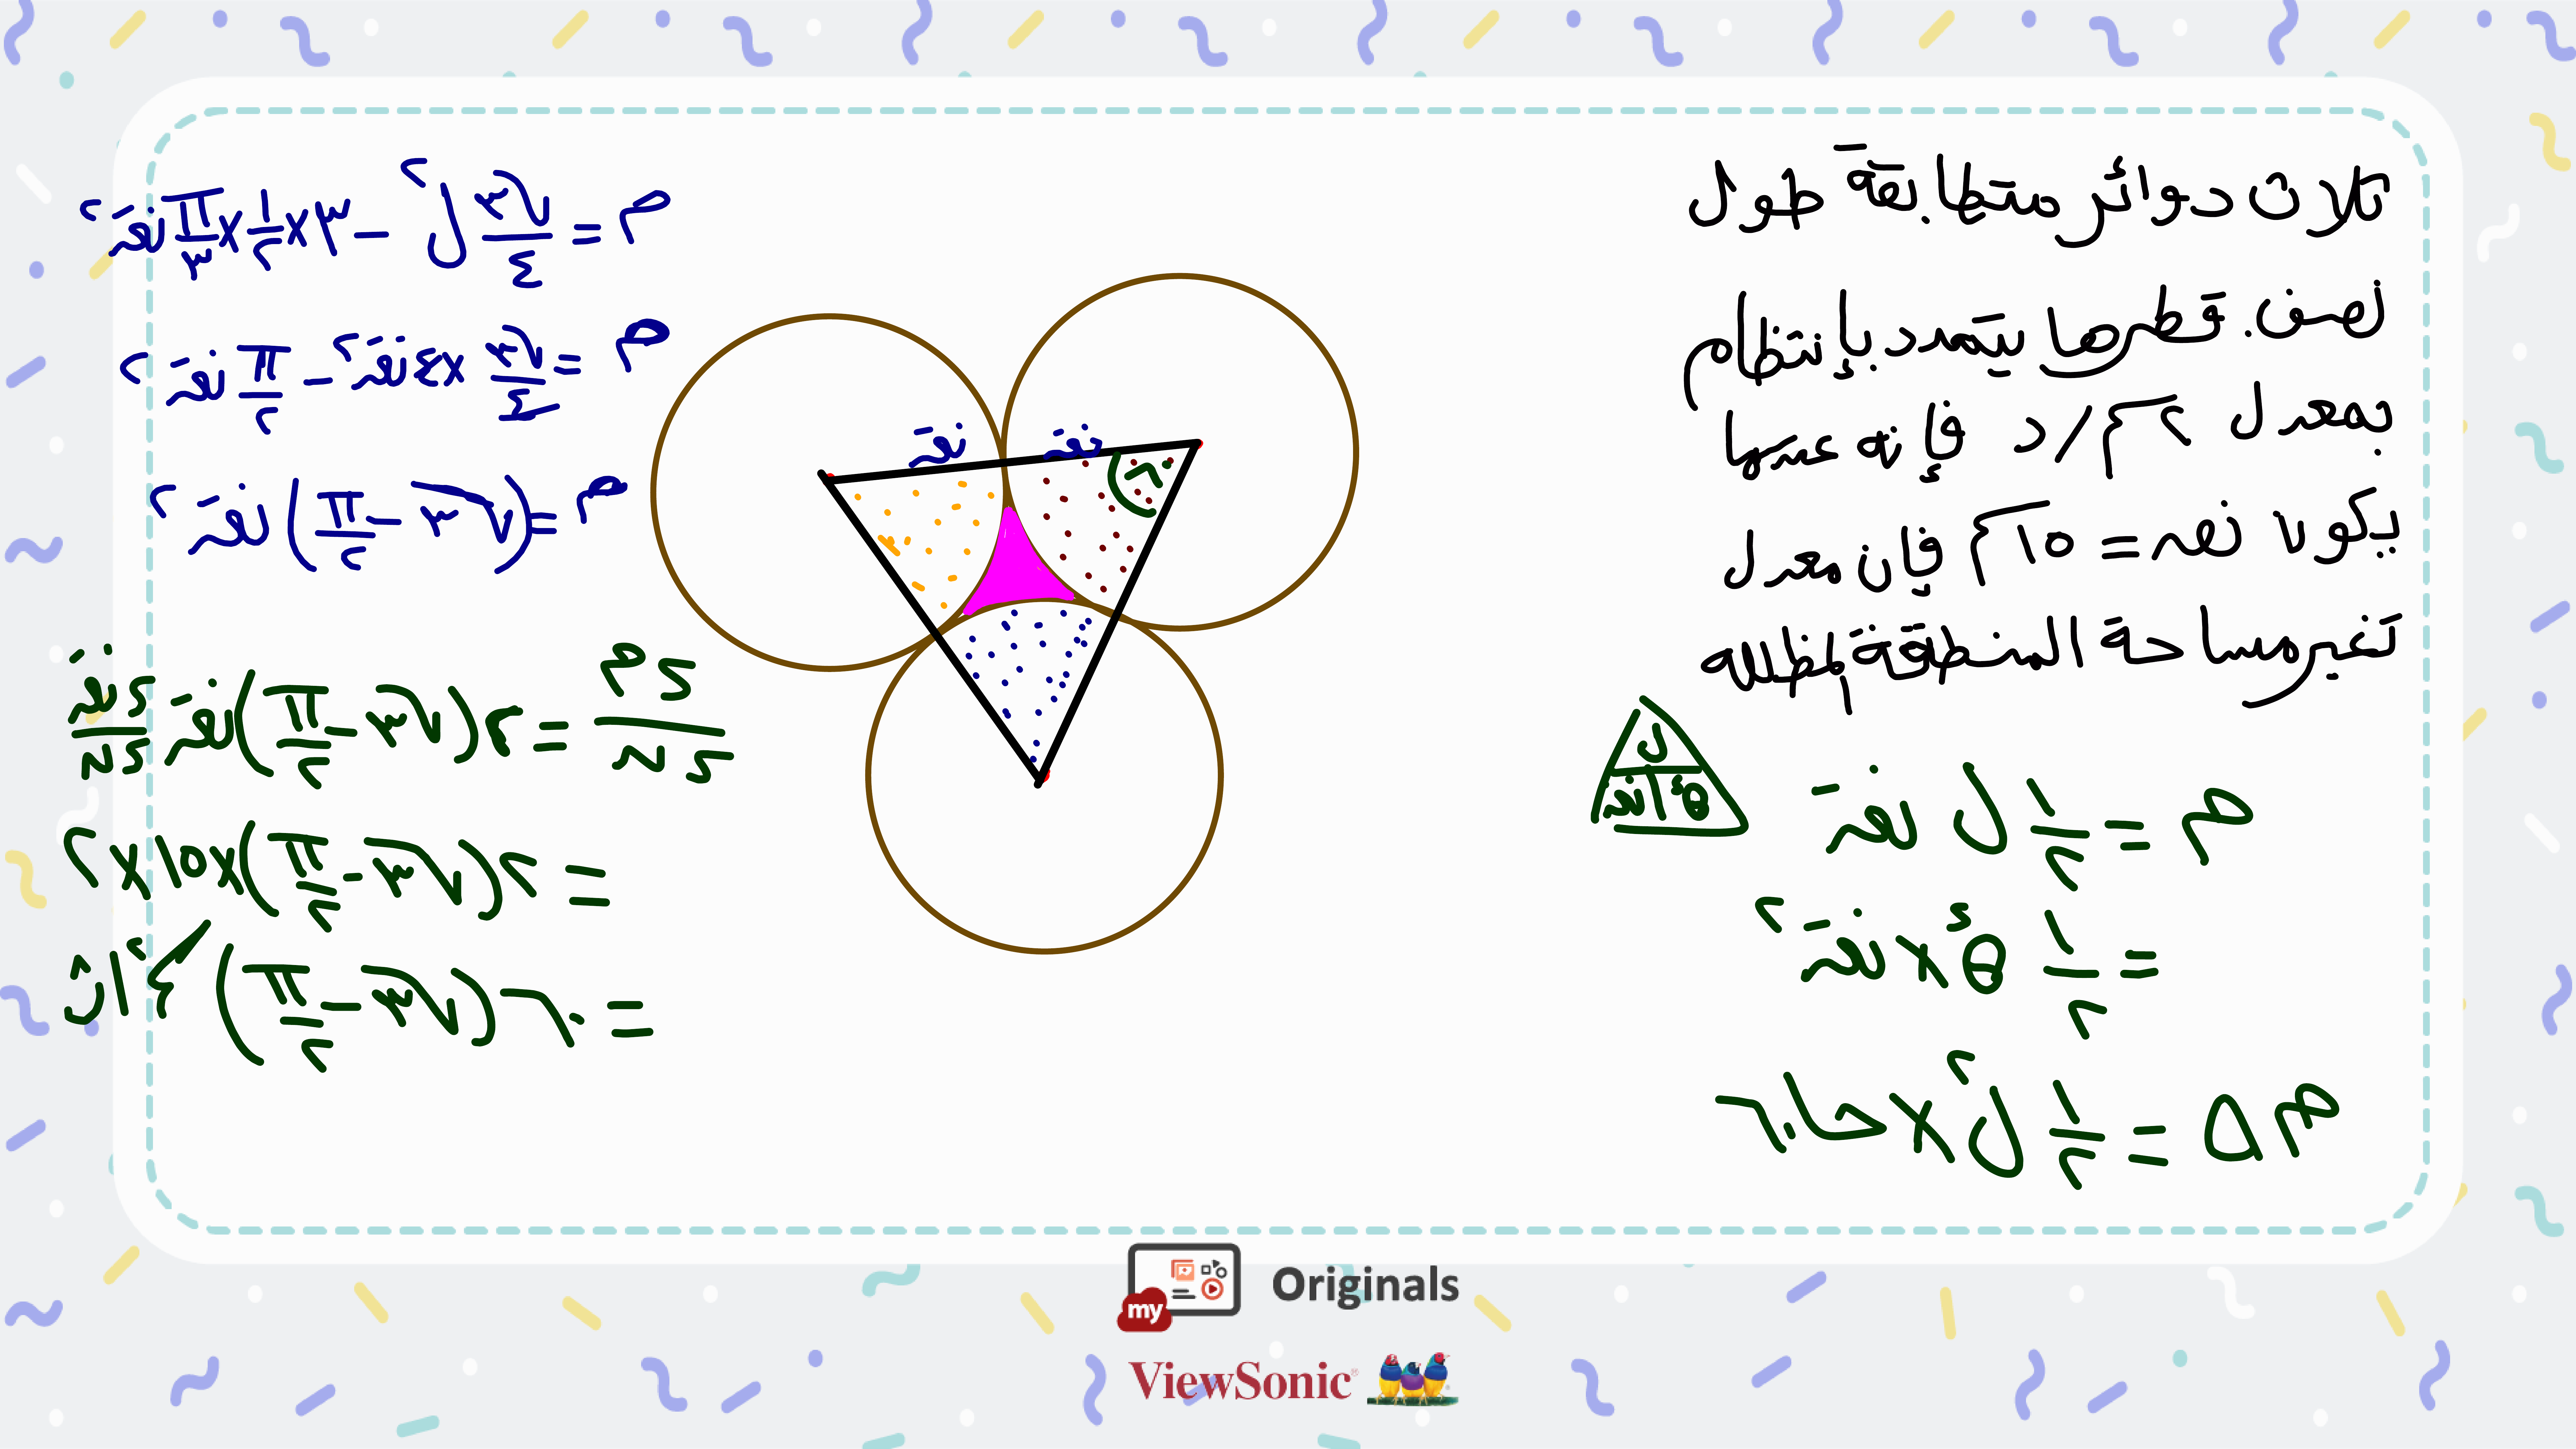 ثلاث دوائر متطابقة طول
نصف قطرها يتمدد بإنتظام
بمعدل ٢ سم/د فإنه عندما
يكون نق = ١٥ سم فإن معدل
تغير مساحة المنطقة المظللة
م = ١/٢ ل نق
ل
θء نق
= ١/٢ θء × نق٢
م △ = ١/٢ ل٢ × حا ٦٠
نق نق
٦٠
م = √٣/٤ ل٢ − ٣ × ١/٢ × π/٣ نق٢
م = √٣/٤ × ٤ نق٢ − π/٢ نق٢
م = (√٣ − π/٢) نق٢
ءم/ءن = ٢(√٣ − π/٢) نق ءنق/ءن
= ٢(√٣ − π/٢) × ١٥ × ٢
= ٦٠(√٣ − π/٢) سم٢/ث
my Originals
ViewSonic